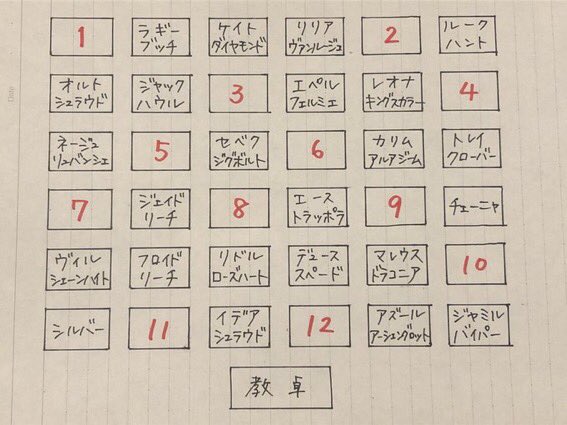 1 ラギー ケイト リリア 2 ルーク
ブッチ ダイヤモンド ヴァンルージュ ハント
オルト ジャック 3 エペル レオナ 4
シュラウド ハウル フェルミエ キングスカラー
ネージュ 5 セベク 6 カリム トレイ
リュバンシェ ジグボルト アルアジーム クローバー
7 ジェイド 8 エース 9 チェーニャ
リーチ トラッポラ
ヴィル フロイド リドル デュース マレウス 10
シェーンハイト リーチ ローズハート スペード ドラコニア
シルバー 11 イデア 12 アズール ジャミル
シュラウド アーシェングロット バイパー
教卓